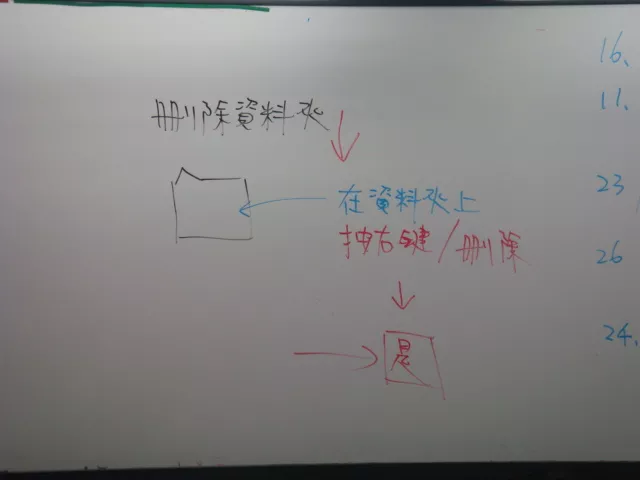 刪除資料夾
在資料夾上
按右鍵/刪除
是
16、
11、
23
26
24、